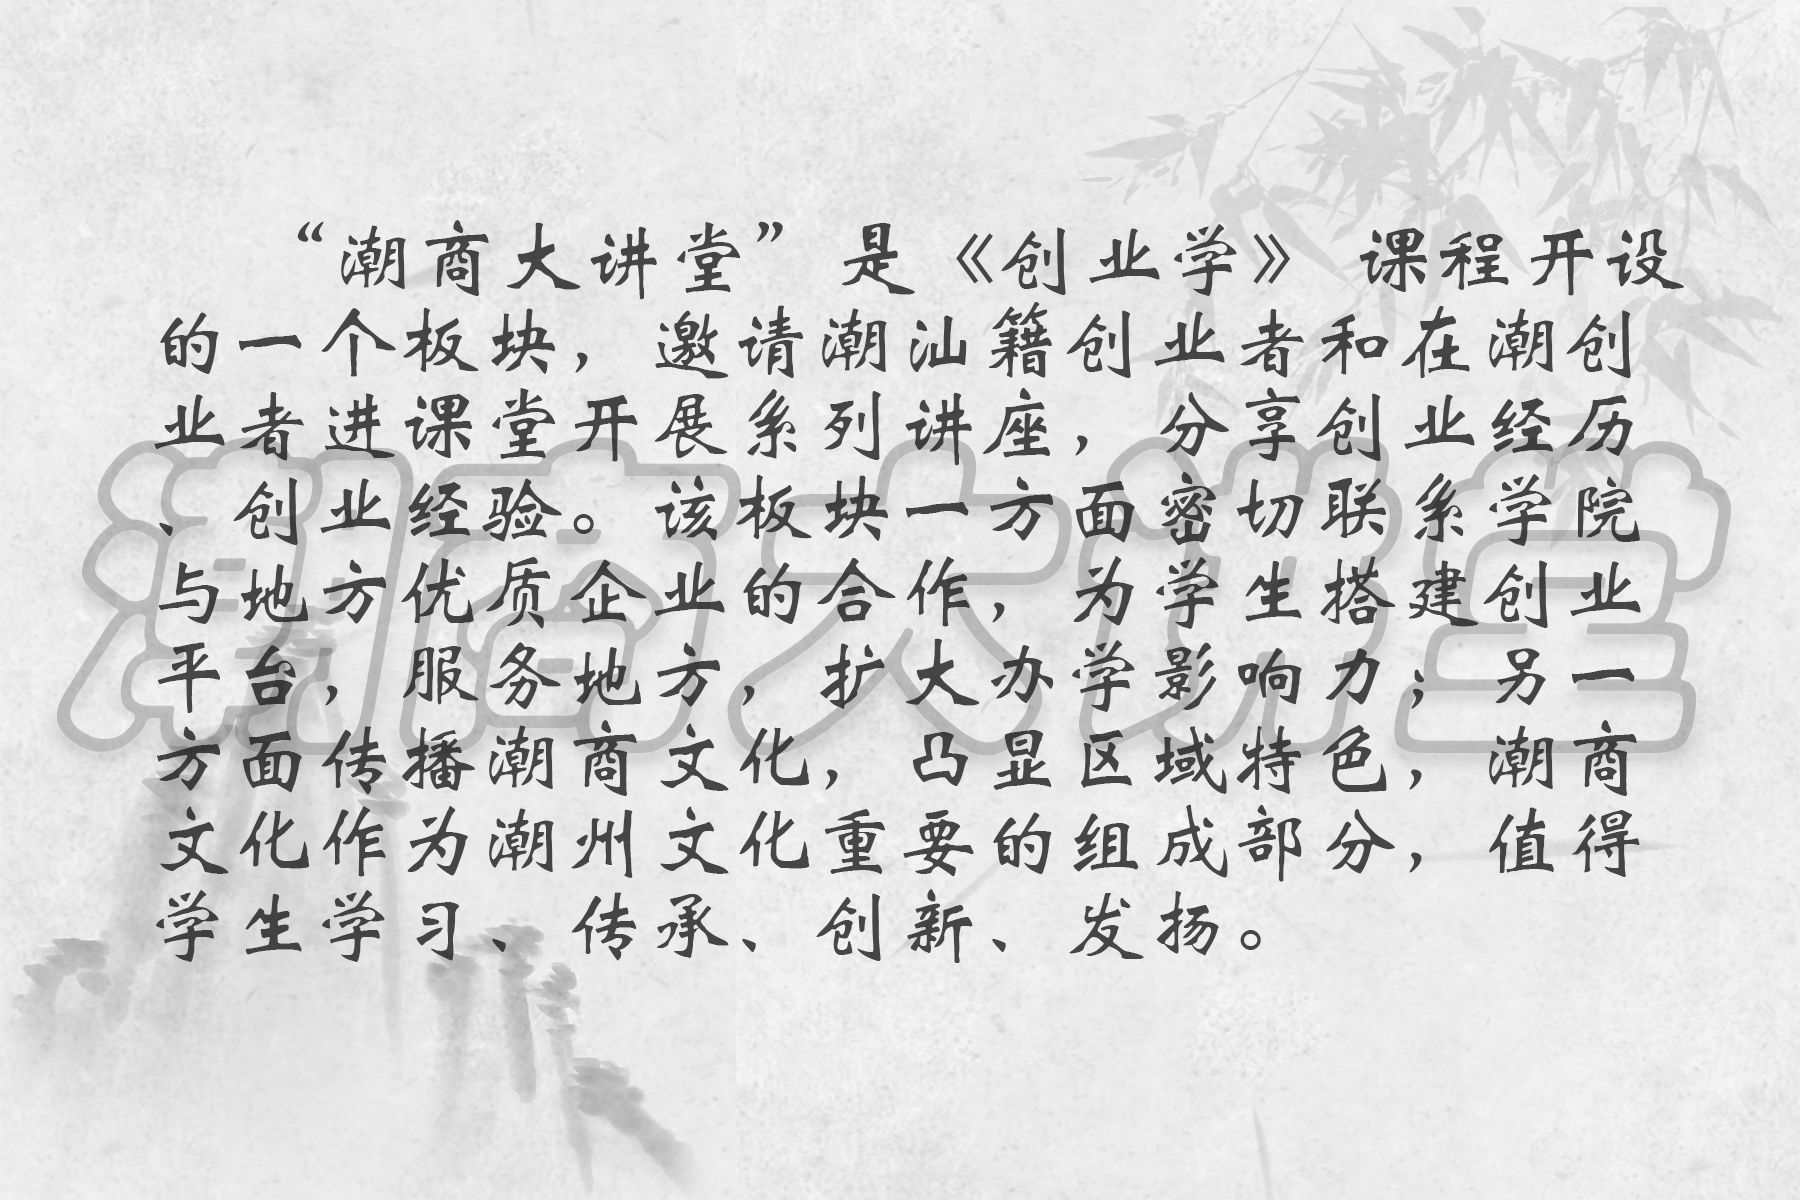 “潮商大讲堂”是《创业学》课程开设
的一个板块，邀请潮汕籍创业者和在潮创
业者进课堂开展系列讲座，分享创业经历
、创业经验。该板块一方面密切联系学院
与地方优质企业的合作，为学生搭建创业
平台，服务地方，扩大办学影响力；另一
方面传播潮商文化，凸显区域特色，潮商
文化作为潮州文化重要的组成部分，值得
学生学习、传承、创新、发扬。
潮商大讲堂